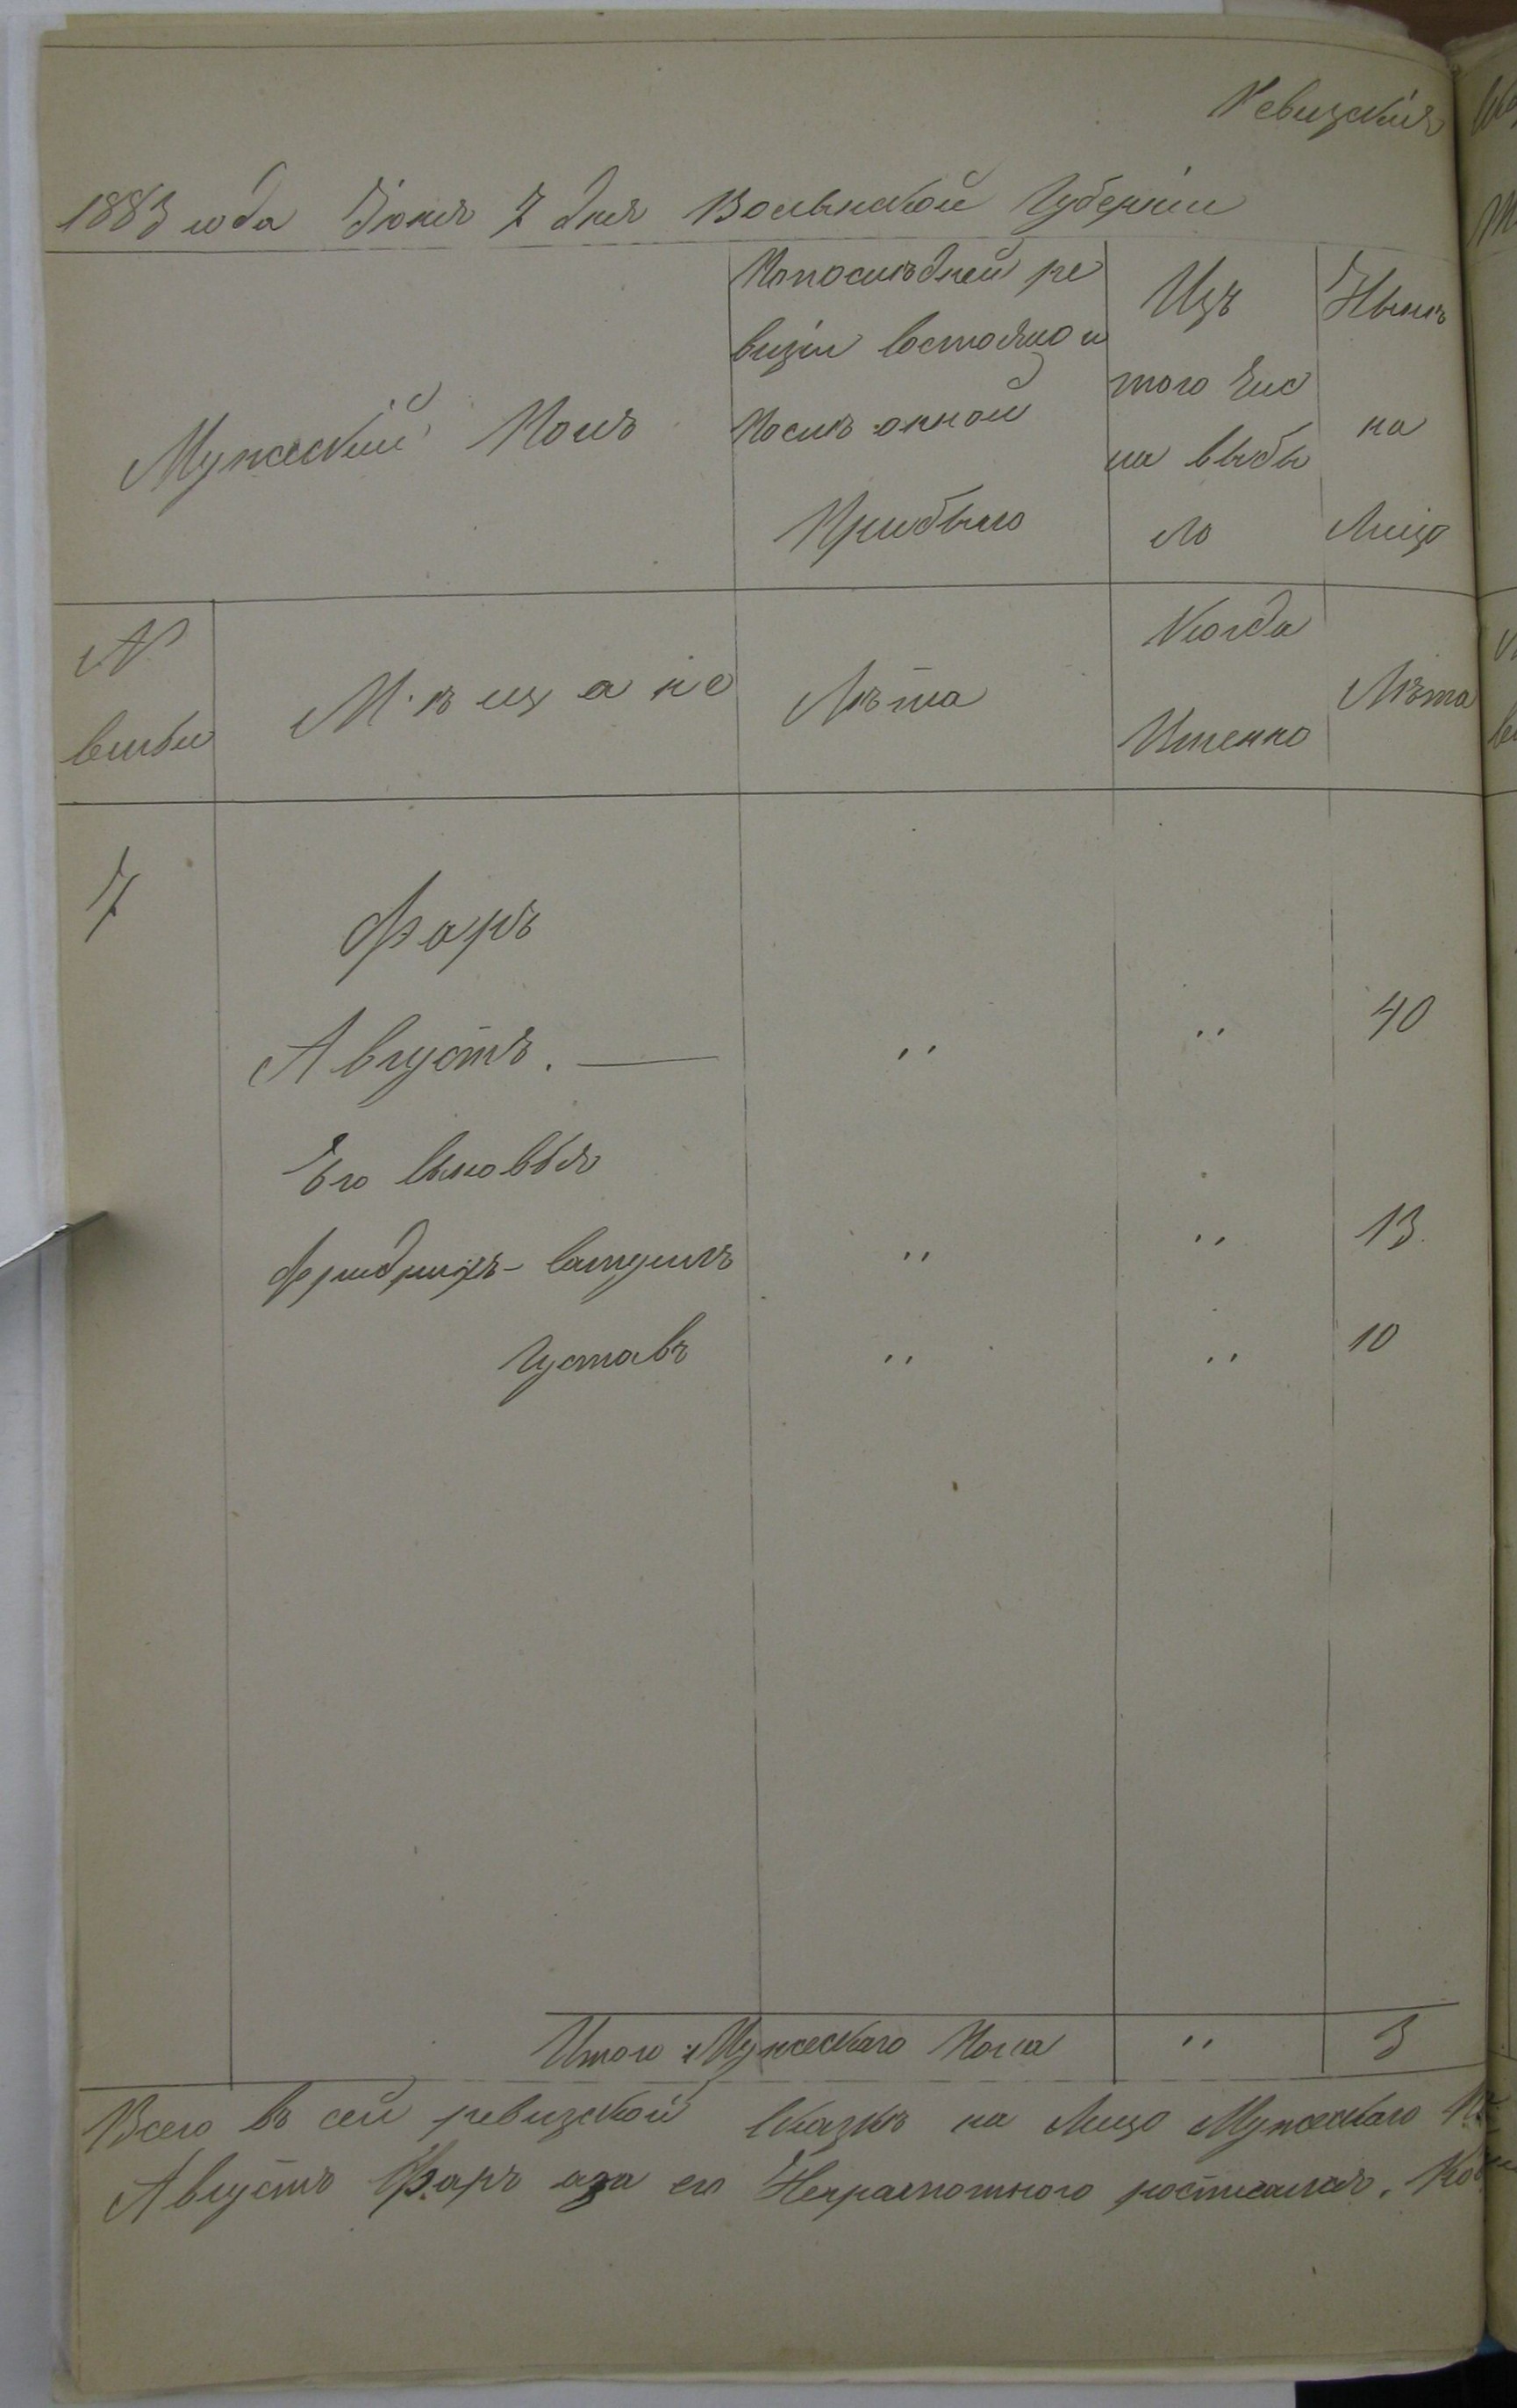 Ревизскія
1883 года Іюня 7 дня Волынской Губерніи
Мужескій Полъ
Попослѣдней ре
визіи состояло и
Послѣ оной
Прибыло
Изъ
того чис
ла выбы
ло
Нынѣ
на
Лицо
№
семьи
Мѣщане
Лѣта
Когда
Именно
Лѣта
7
Фаръ
Августъ. — ,, ,, 40
Его сыновья
Фридрихъ- ,, ,, 13
Густавъ ,, ,, 10
Итого Мужескаго Пола ,, 3
Всего въ сей ревизской сказкѣ на Лицо Мужескаго
Августъ Фаръ аза его Неграмотного росписался.